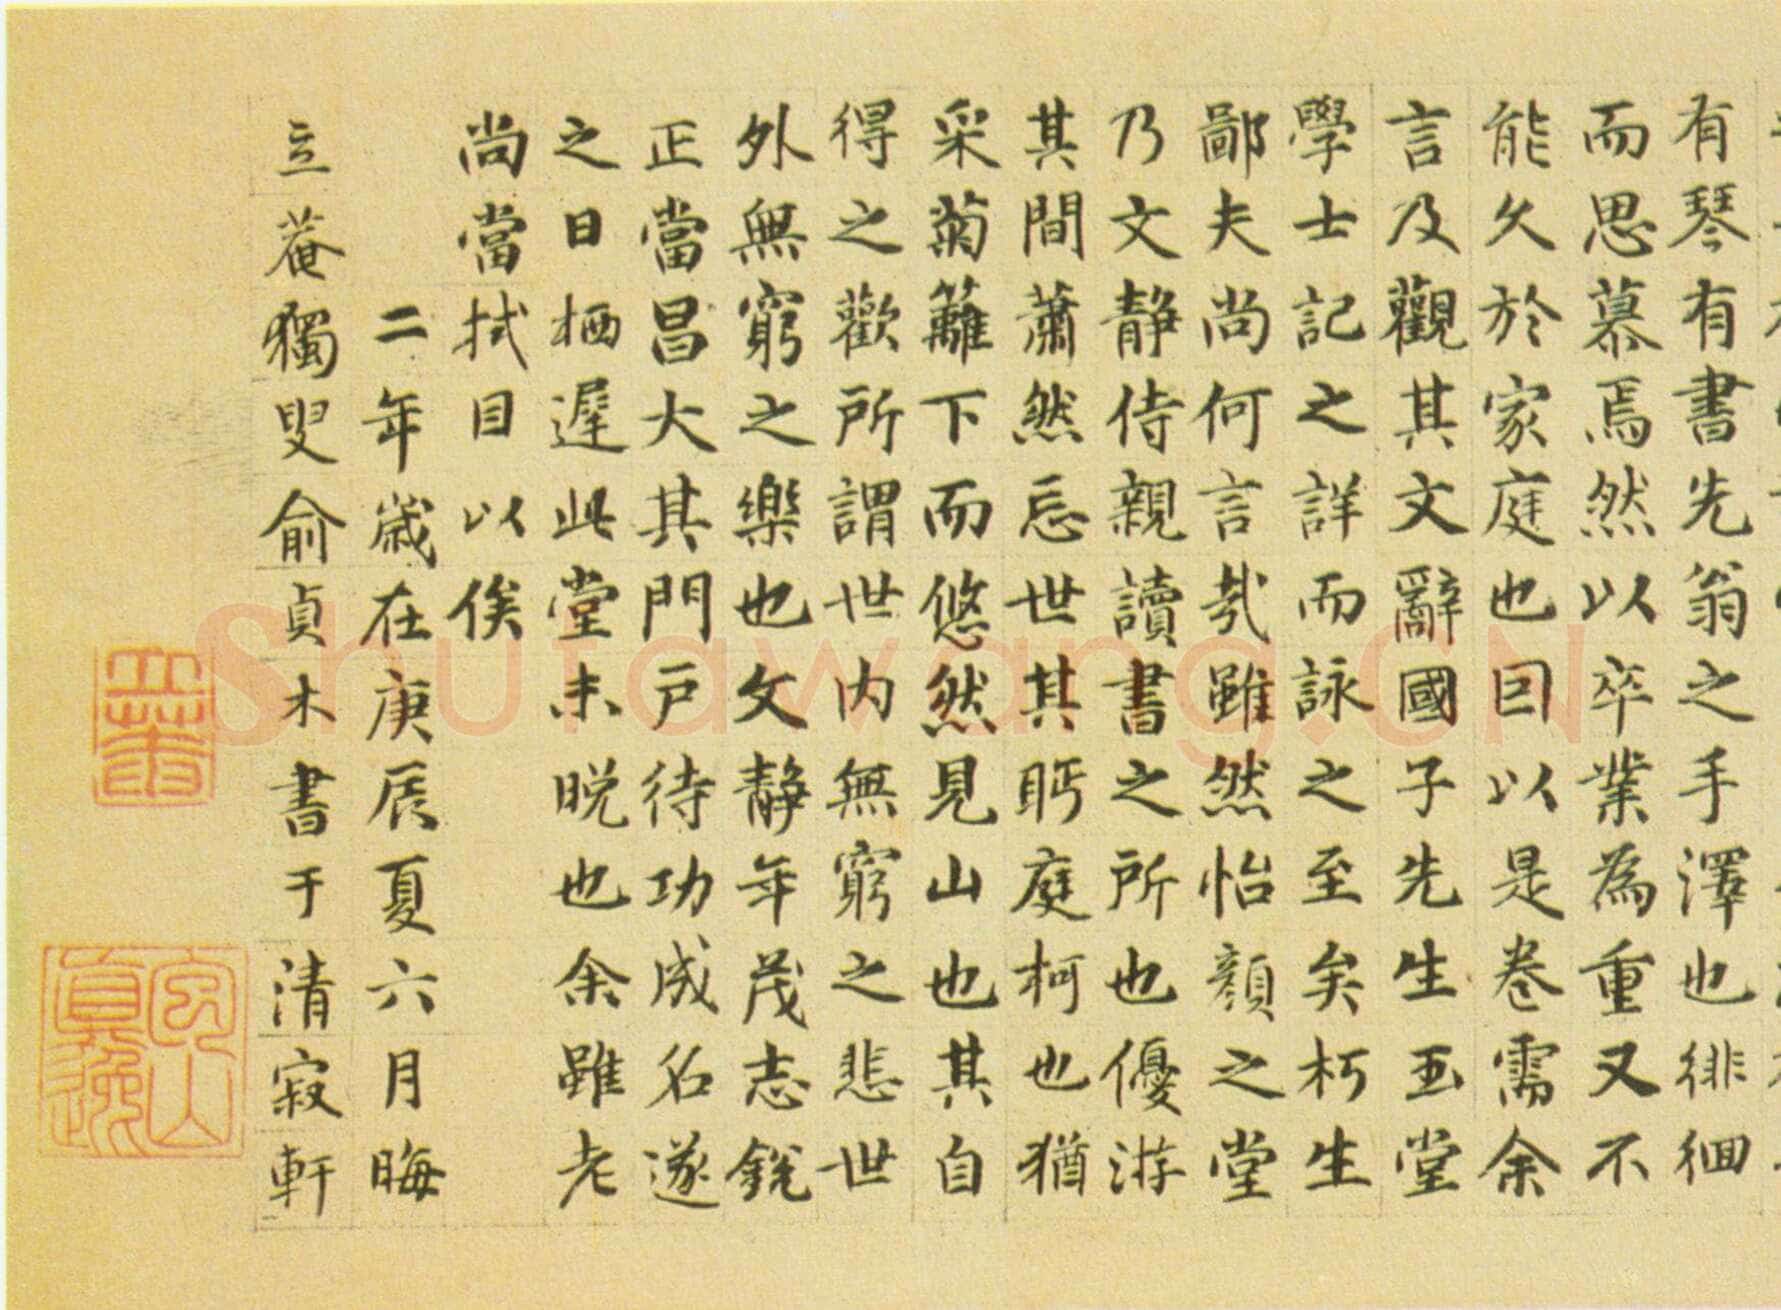 有琴有書先翁之手澤也徘徊
而思慕焉然以卒業為重又不
能久於家庭也囙以是卷需余
言及觀其文辭國子先生玉堂
學士記之詳而詠之至矣朽生
鄙夫尚何言哉雖然怡顏之堂
乃文静侍親讀書之所也優游
其間蕭然忘世其眄庭柯也猶
采菊籬下而悠然見山也其自
得之歡所謂世内無窮之悲世
外無窮之樂也文静年茂志銳
正當昌大其門戶待功成名遂
之日栖遲此堂未晚也余雖老
尚當拭目以俟
二年歲在庚辰夏六月晦
立菴獨叟俞貞木書于清寂軒
Shufawang.CN